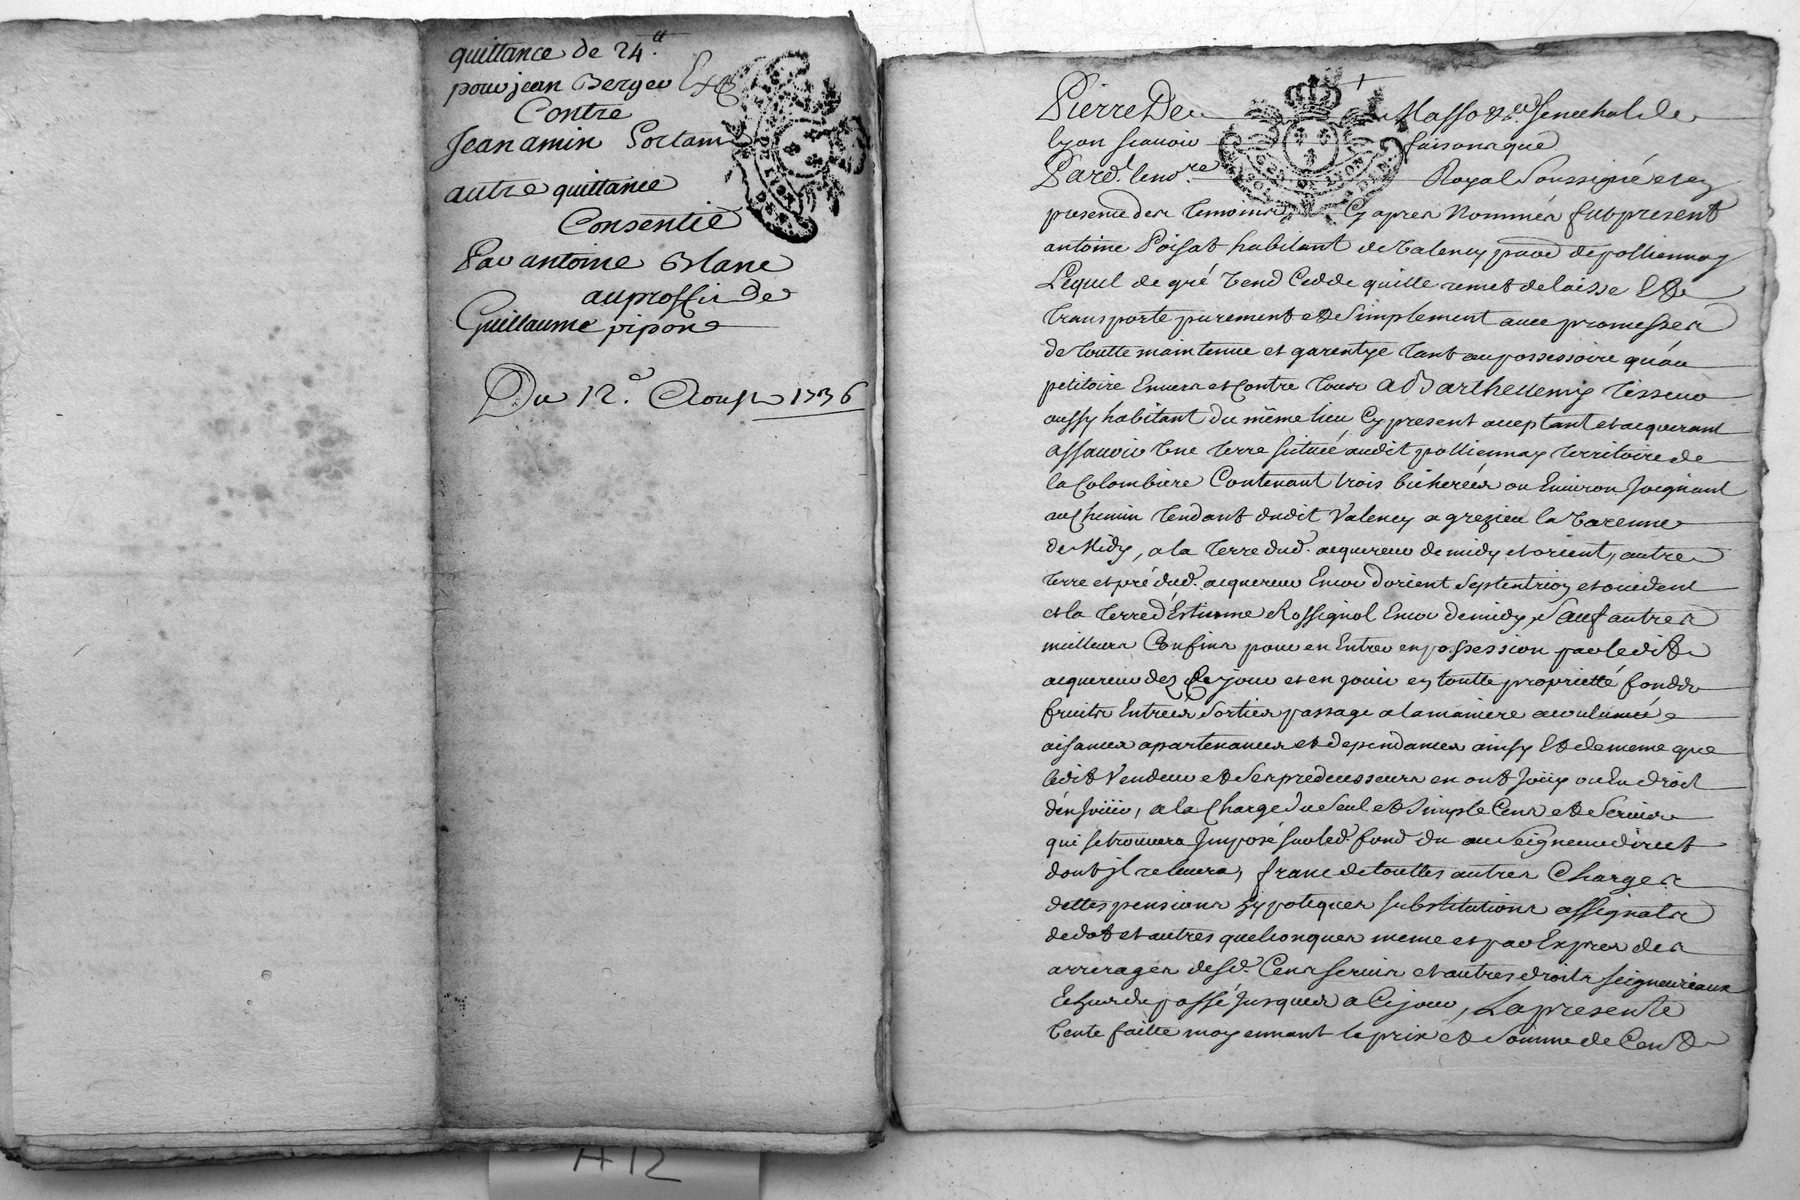 quittance de 24.tt
pour jean Berger
Contre
Jean amin
autre quittance
Consentie
Par antoine Blanc
au proffit De
Guillaume pipon
Du 12.e Aoust 1736
Pierre De Masso &.a Senechal de
lyon scavoir faisons que
Pard.t le no.re Royal Soussigné et en
presence des temoins Cy apres Nommés fut present
antoine Poisat habitant de Valency parr.e de pollionnay
Lequel de gré vend Cedde quitte remet delaisse Et
transporte purement et Simplement avec promesses
de toutte maintenue et garentye tant au possessoire qu'au
petitoire Envers et Contre tous a Barthellemy Tisseur
aussy habitant du même lieu Cy present acceptant et acquerant
assavoir Une terre scituée audit pollionnay territoire de
la Colombiere Contenant trois bicherées ou Environ Joignant
au Chemin tendant dudit Valency a grezieu la Varenne
de Midy, a la terre dud. acquereur de midy et orient, autre
terre et pré dud. acquereur Encor d'orient Septentrion et occident
et la terre d'Estienne Rossignol Encor de midy, Sauf autres
meilleurs Confins pour en Entrer en possession par ledit
acquereur dez Ce jour et en jouir en toutte proprietté fondz
fruits Entrées Sorties passage a la maniere accoutumée
aisances apartenances et dependances ainsy Et de meme que
ledit Vendeur et Ses predecesseurs en ont Joüy ou Eu droit
d'en Joüir, a la Charge du Seul et Simple Cens et Servis
qui se trouvera Imposé sur led. fond du au Seigneur direct
dont jl relevera, franc de touttes autres Charges
dettes pensions hypoteques substitutions assignats
de dot et autres quelconques meme et par Expres des
arrerages desd. Cens servis et autres droits seigneuriaux
Echus du passé Jusques a Ce jour, La presente
Vente faitte moyennant le prix et Somme de Cent
A 12